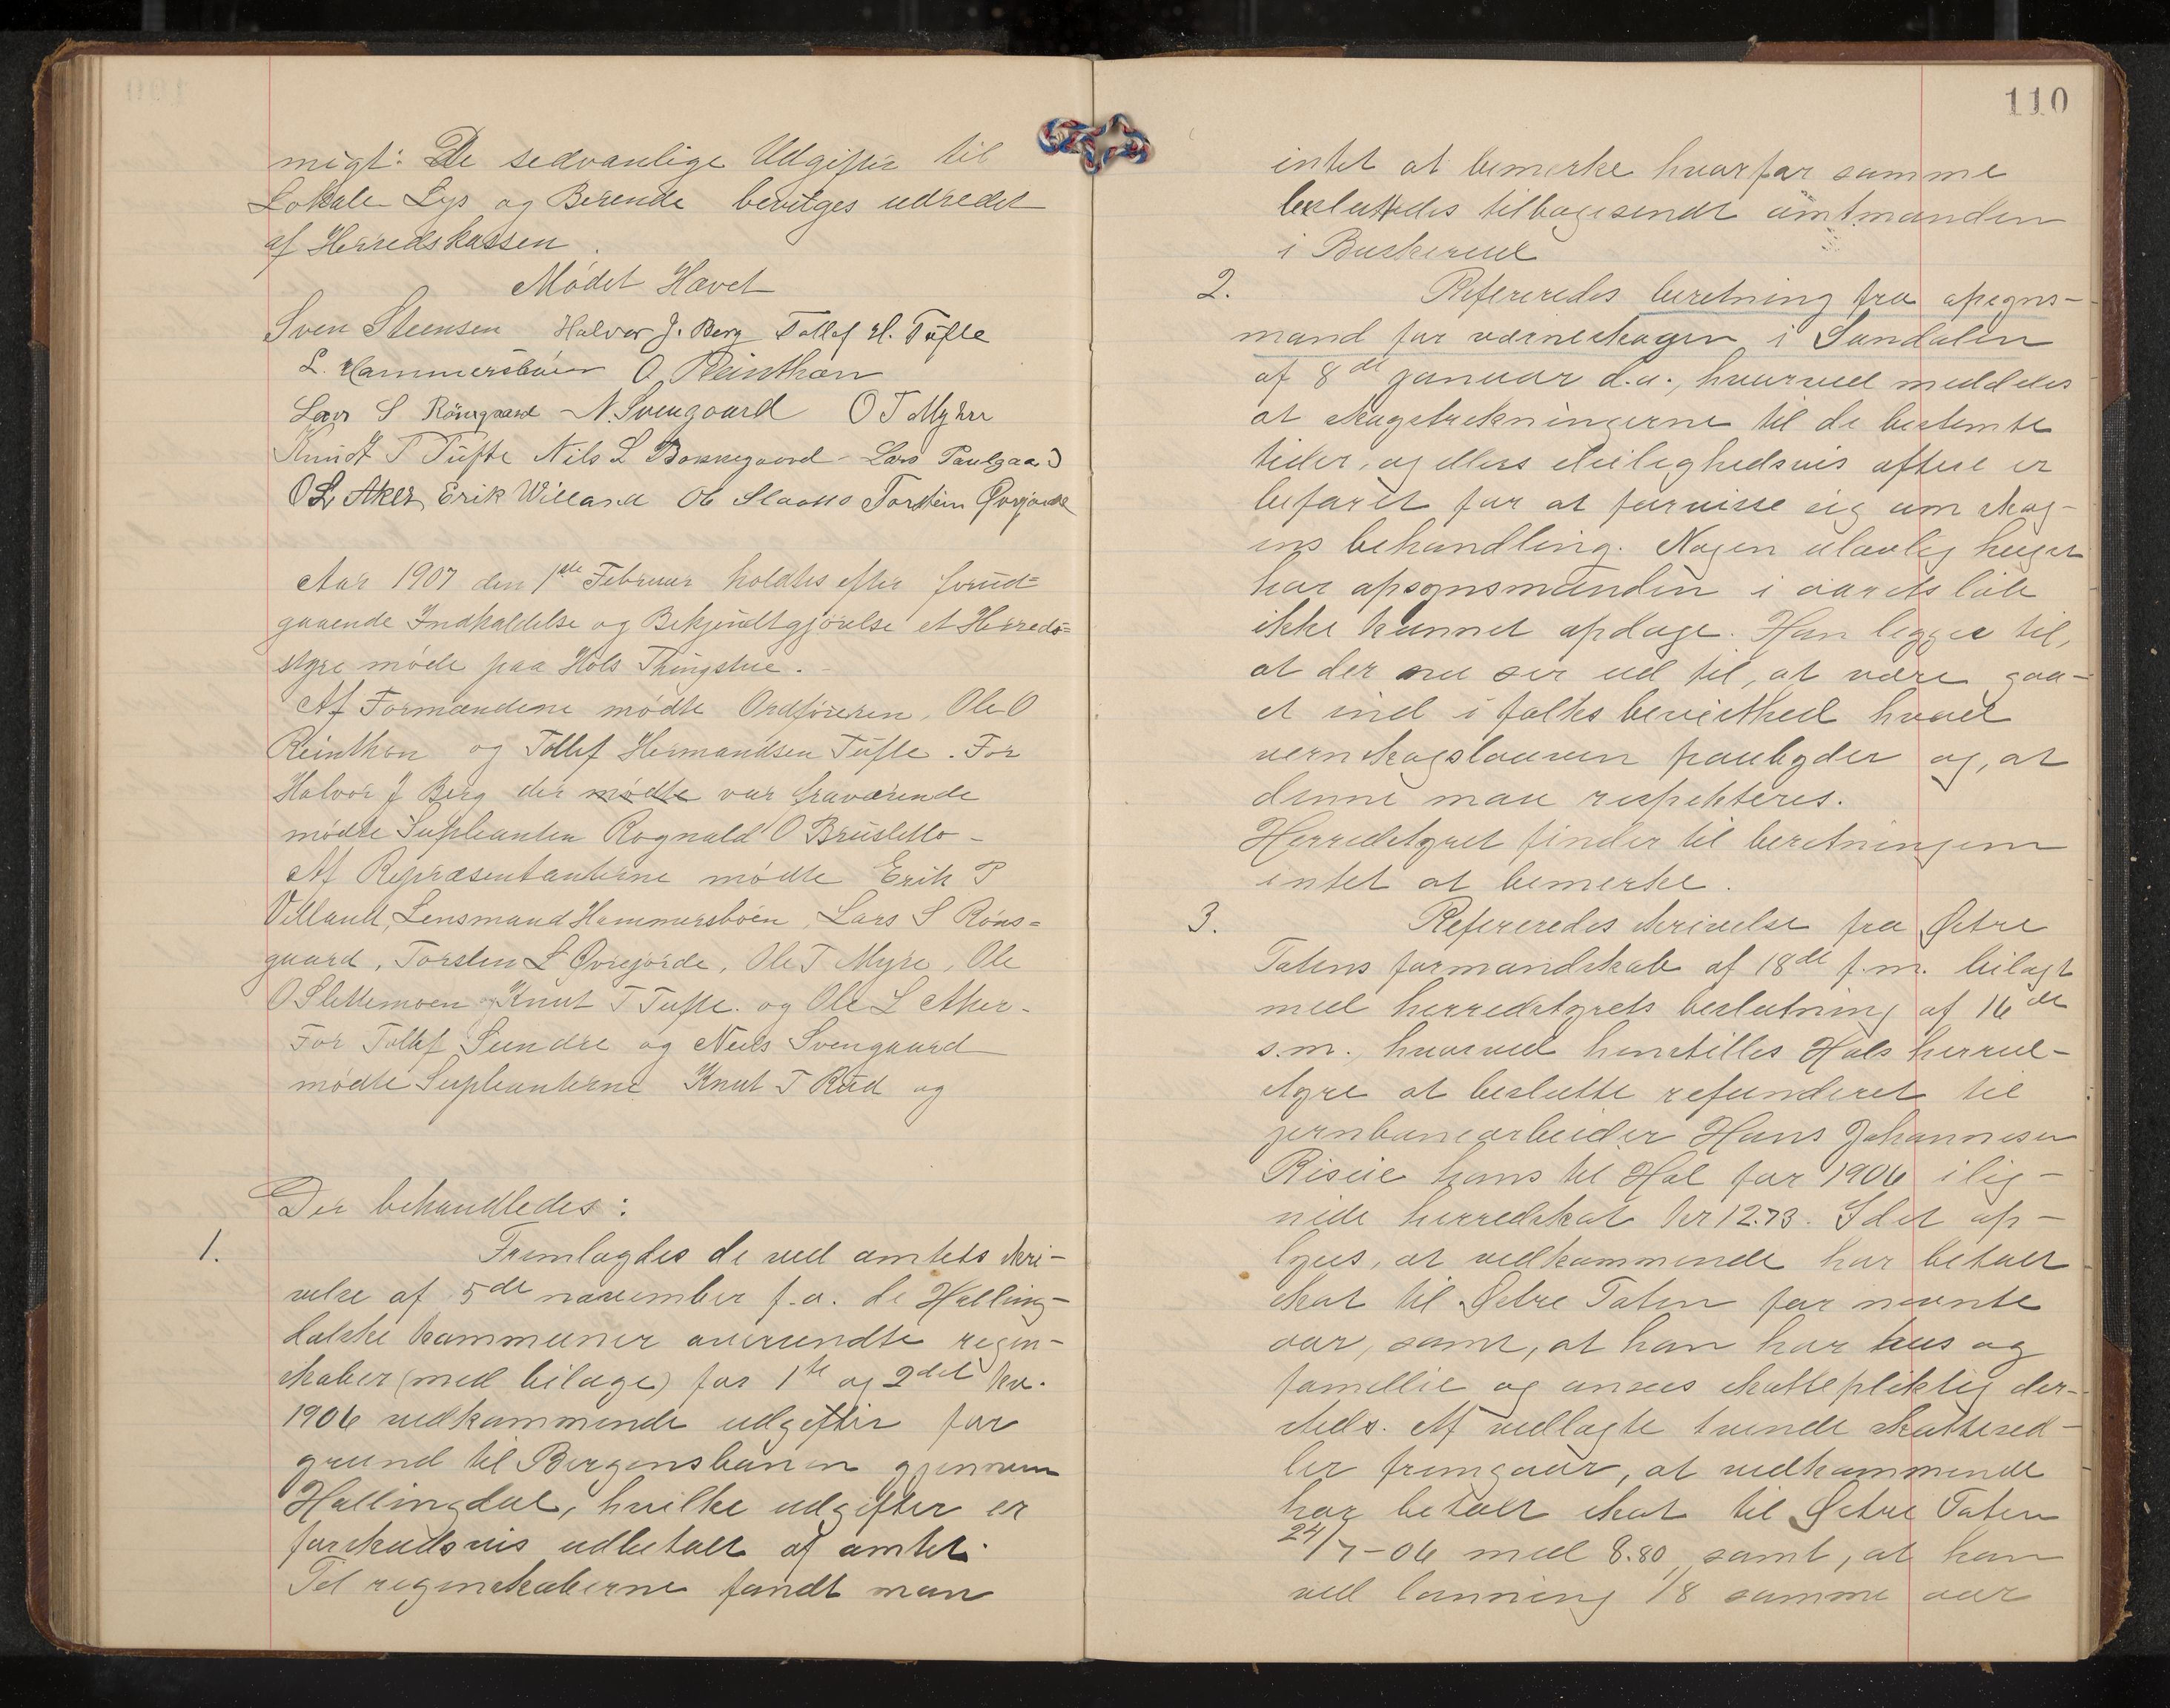 migt. De sedvanlige Udgifter til
Lokale Lys og Berende bevilges udredet
af Herredskassen.
Mødet Hævet
Sven Steensen Halvor J. Berg Tollef H. Tufte
L. Hammersbøen O. Reinthon
Lars S Rönsgaard N. Svengaard O T Myhre
Knudt T Tufte Nils L Bakkegaard Lars Paulgaard
O L Aker Erik Villand Ob Slaatto Torstein Øvrejorde
Aar 1907 den 1ste Februar holdtes efter forud=
gaaende Indkaldelse og Bekjendtgjørelse et Herreds=
styre møde paa Hols Thingstue.
Af Formændene mødte Ordføreren, Ole O
Reinthon og Tollef Hermandsen Tufte. For
Halvor J Berg der mødte var fraværende
mødte Supleanten Rognald O Brusletto -
Af Repræsentanterne mødte Erik P
Villand, Lensmand Hammersbøen, Lars S Røns=
gaard, Torsten L Øvrejorde, Ole T Myre, Ole
O Slettemoen og Knut T Tufte. og Ole L Aker -
For Tollef Sundre og Neils Svengaard
mødte Supleanterne Knut T Rud og
Der behandledes:
1. Fremlagdes de ved amtets skri-
velse af 5de november f.a. de Halling-
dalske kommuner oversendte regn-
skaber (med bilage) for 1ste og 2det kv.
1906 vedkommende udgifter for
grund til Bergensbanen gjennem
Hallingdal, hvilke udgifter er
forskudsvis udbetalt af amtet.
Til regnskaberne fandt man
110
intet at bemerke hvorfor samme
besluttedes tilbagesendt amtmanden
i Buskerud
2. Refereredes beretning fra opsyns-
mand for værneskogen i Sundalen
af 8de januar d.a., hvorved meddeles
at skogstrekningerne til de bestemte
tider, og ellers leilighedsvis oftere er
befaret for at forvisse sig om skog-
ens behandling. Nogen ulovlig hugst
har opsynsmanden i aarets løb
ikke kunnet opdage. Han legger til,
at der nu ser ud til, at være gaa-
et ind i folks bevisthed hvad
vernskogsloven paabyder og, at
denne maa respekteres.
Herredstyret finder til beretningen
intet at bemerke.
3. Refereredes skrivelse fra Østre
Totens formandskab af 18de f.m. bilagt
med herredstyrets beslutning af 16de
s.m., hvorved henstilles Hols herred-
styre at beslutte refunderet til
jernbanearbeider Hans Johannesen
Riseie hans til Hol for 1906 ilig-
nede herredskat kr 12.73. Idet op-
lyses, at vedkommende har betalt
skat til Østre Toten for nævnte
aar, samt, at han har hus og
famillie og ansees skattepliktig der-
steds. Af vedlagte tvende skattesed-
ler fremgaar, at vedkommende
har betalt skat til Østre Toten
24/7-06 med 8.80, samt, at han
ved lønning 1/8 samme aar